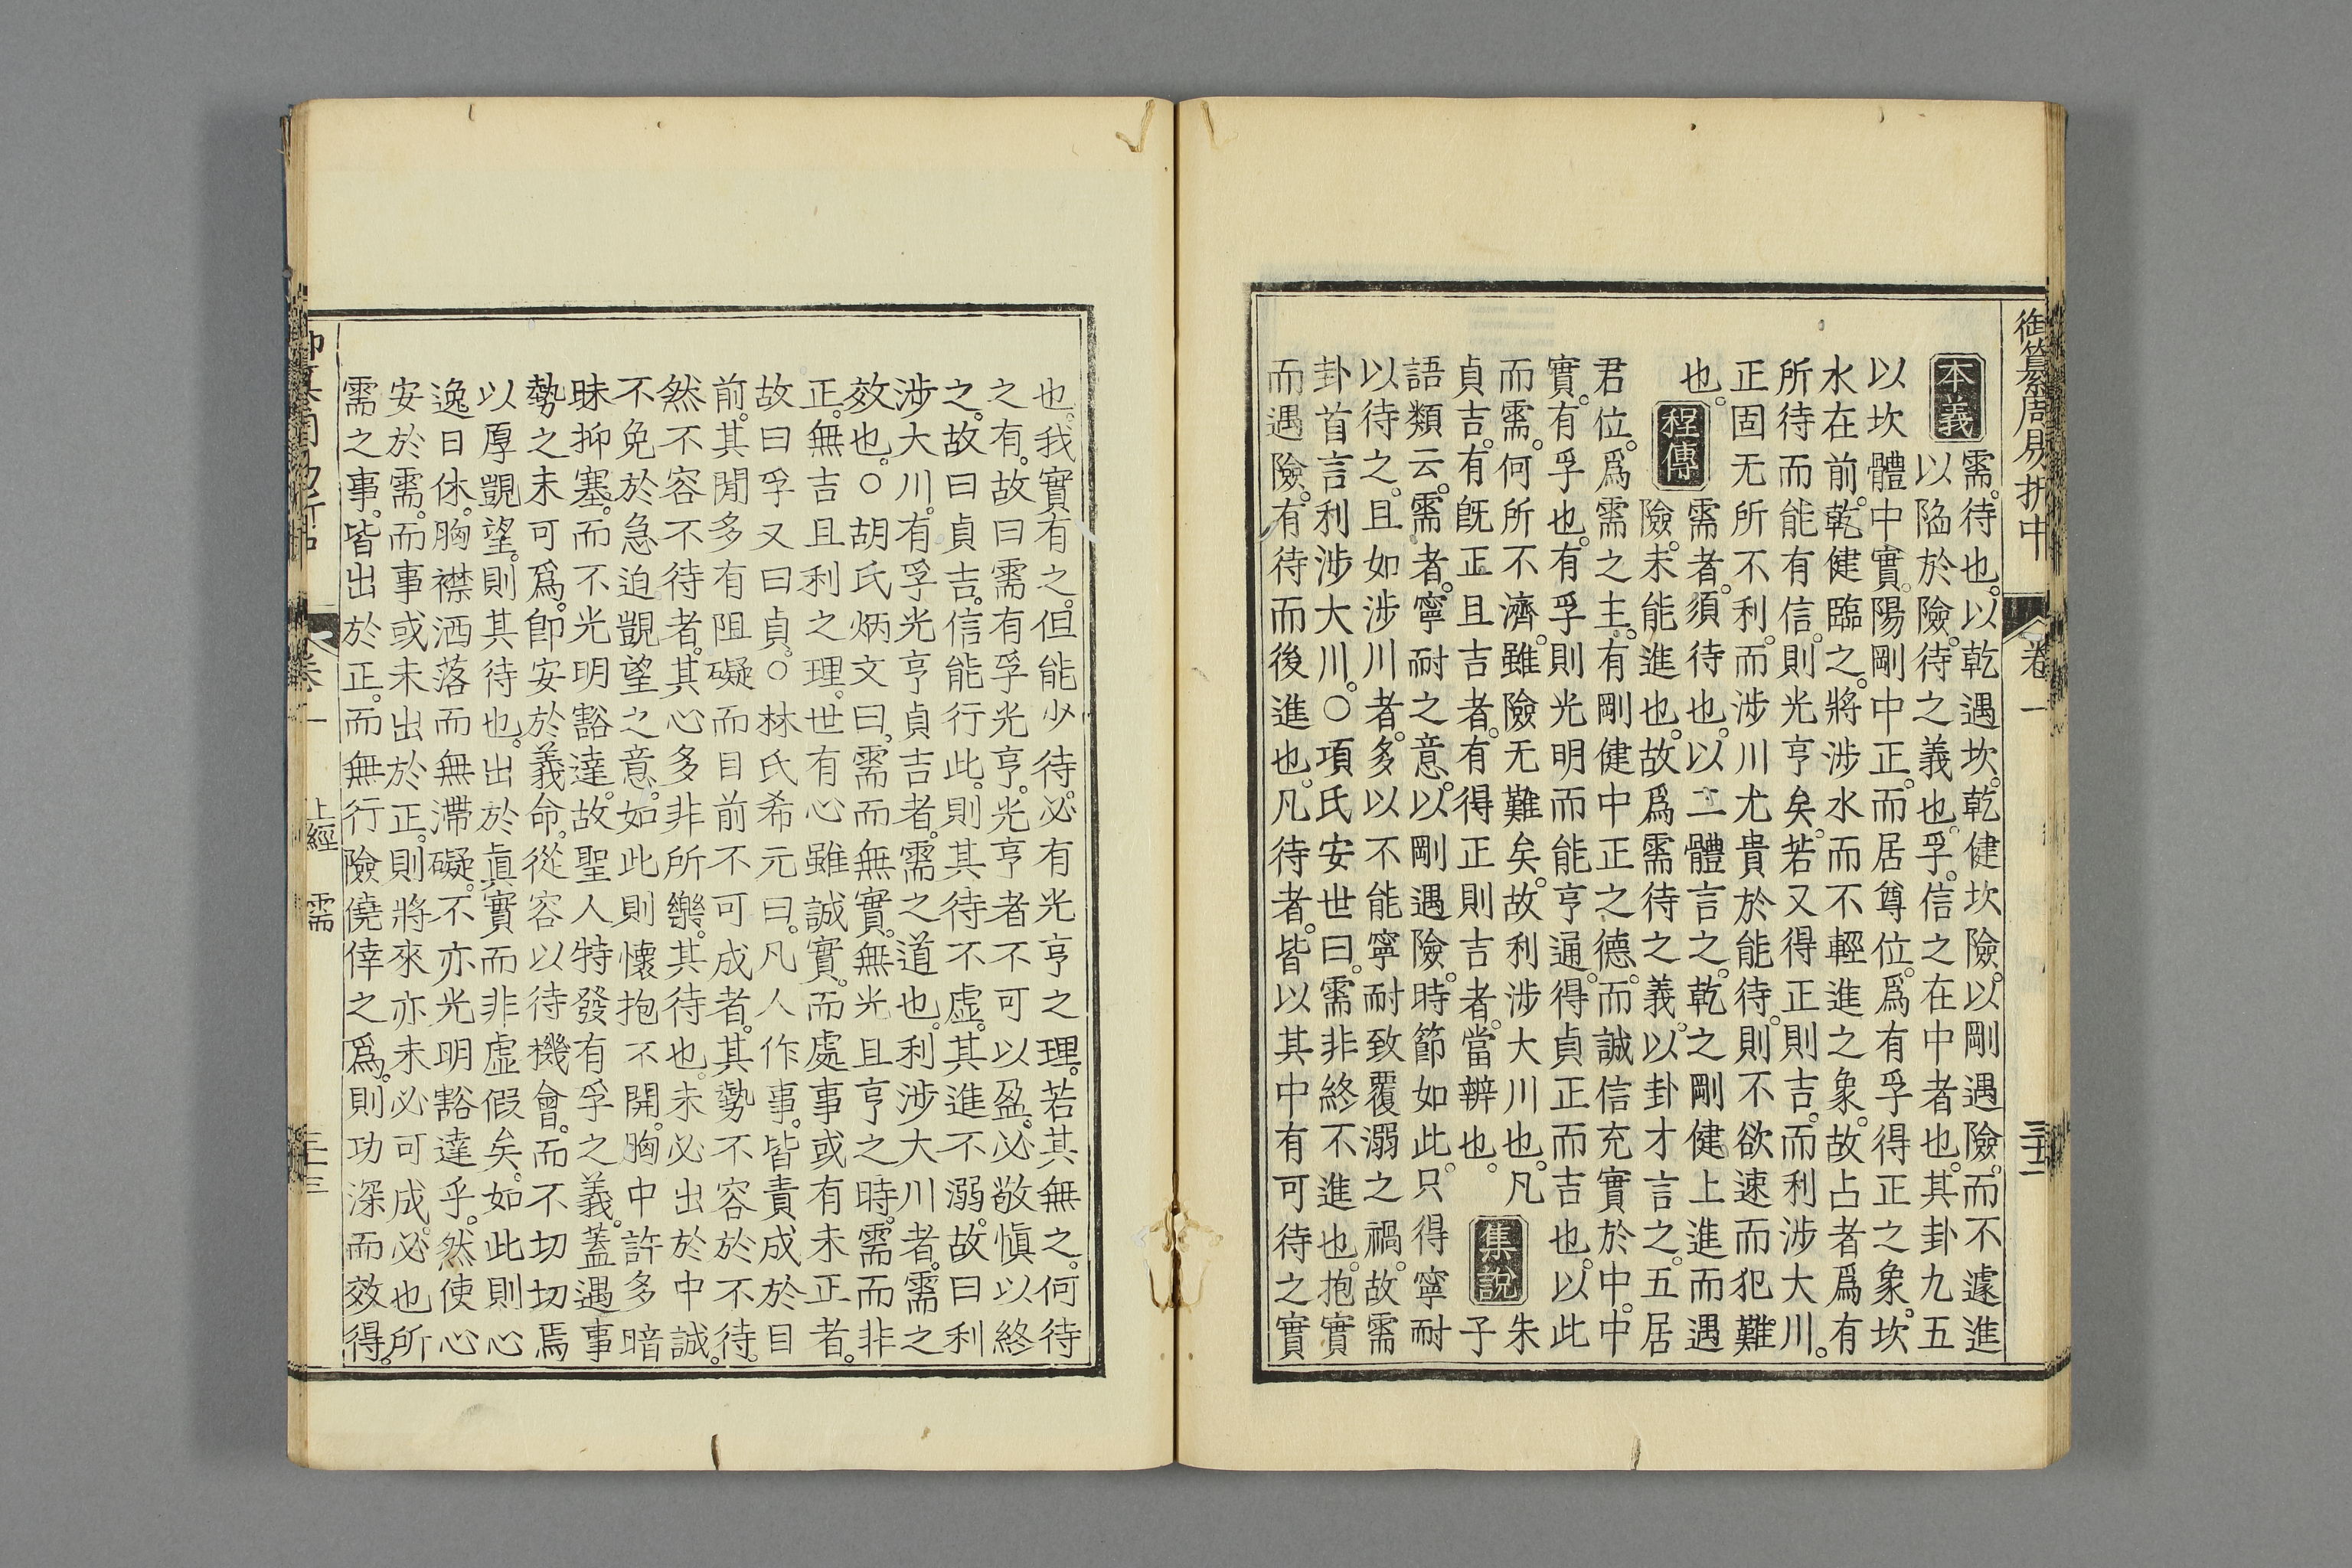 御纂周易折中 卷一 三十二
本義
需。待也。以乾遇坎。乾健坎險。以剛遇險。而不遽進
以陷於險。待之義也。孚。信之在中者也。其卦九五
以坎體中實。陽剛中正。而居尊位。爲有孚得正之象。坎
水在前。乾健臨之。將涉水而不輕進之象。故占者爲有
所待而能有信。則光亨矣。若又得正則吉。而利涉大川。
正固无所不利。而涉川尤貴於能待。則不欲速而犯難
也。
程傳
需者。須待也。以二體言之。乾之剛健上進而遇
險。未能進也。故爲需待之義。以卦才言之。五居
君位。爲需之主。有剛健中正之德。而誠信充實於中。中
實。有孚也。有孚則光明而能亨通。得貞正而吉也。以此
而需。何所不濟。雖險无難矣。故利涉大川也。凡 朱
貞吉。有旣正且吉者。有得正則吉者。當辨也。 子
集說
語類云。需者。寧耐之意。以剛遇險。時節如此。只得寧耐
以待之。且如涉川者。多以不能寧耐致覆溺之禍。故需
卦首言利涉大川。○項氏安世曰。需非終不進也。抱實
而遇險。有待而後進也。凡待者。皆以其中有可待之實
也。我實有之。但能少待。必有光亨之理。若其無之。何待
之有。故曰需有孚光亨。光亨者不可以盈。必敬愼以終
之。故曰貞吉。信能行此。則其待不虛。其進不溺。故曰利
涉大川。有孚光亨貞吉者。需之道也。利涉大川者。需之
效也。○胡氏炳文曰。需而無實。無光且亨之時。需而非
正。無吉且利之理。世有心雖誠實。而處事或有未正者。
故曰孚又曰貞。○林氏希元曰。凡人作事。皆責成於目
前。其閒多有阻礙而目前不可成者。其勢不容於不待。
然不容不待者。其心多非所樂。其待也。未必出於中誠。
不免於急迫覬望之意。如此則懷抱不開。胸中許多暗
昧抑塞。而不光明豁達。故聖人特發有孚之義。蓋遇事
勢之未可爲。卽安於義命。從容以待機會。而不切切焉
以厚覬望。則其待也。出於眞實而非虛假矣。如此則心
逸日休。胸襟洒落而無滯礙。不亦光明豁達乎。然使心
安於需。而事或未出於正。則將來亦未必可成。必也所
需之事。皆出於正。而無行險僥倖之爲。則功深而效得。
卷一 上經 需 三十三